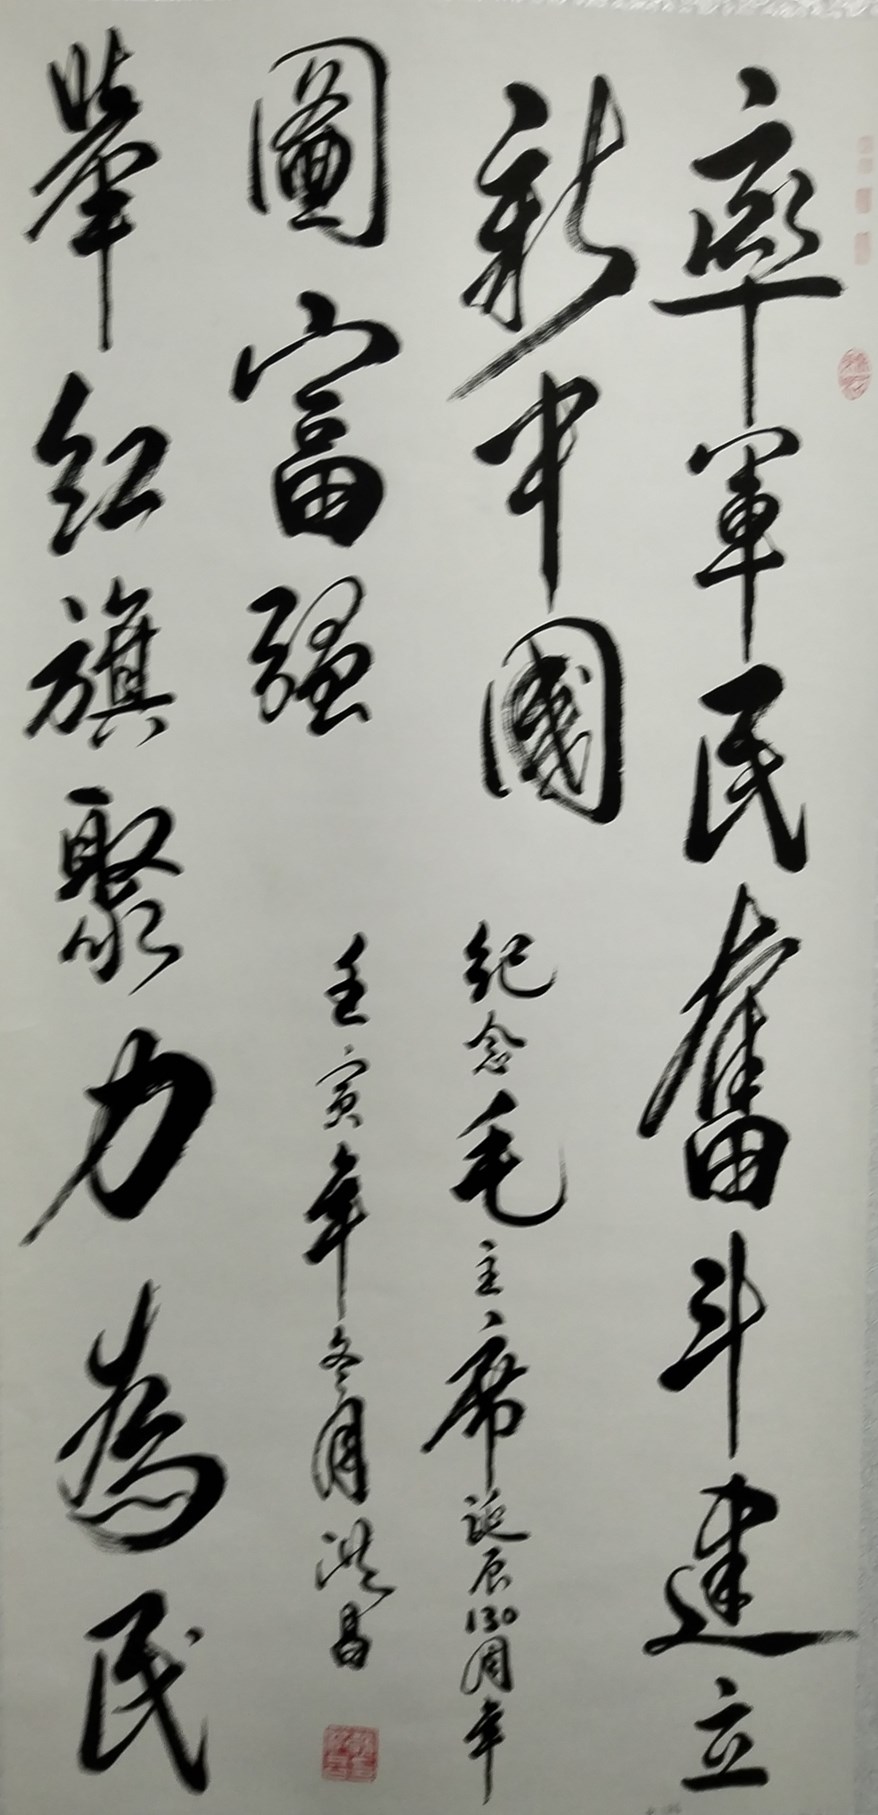 率軍民奮斗建立
新中國
舉红旗聚力為民
圖富强
纪念毛主席誕辰130周年
壬寅年冬月洪昌